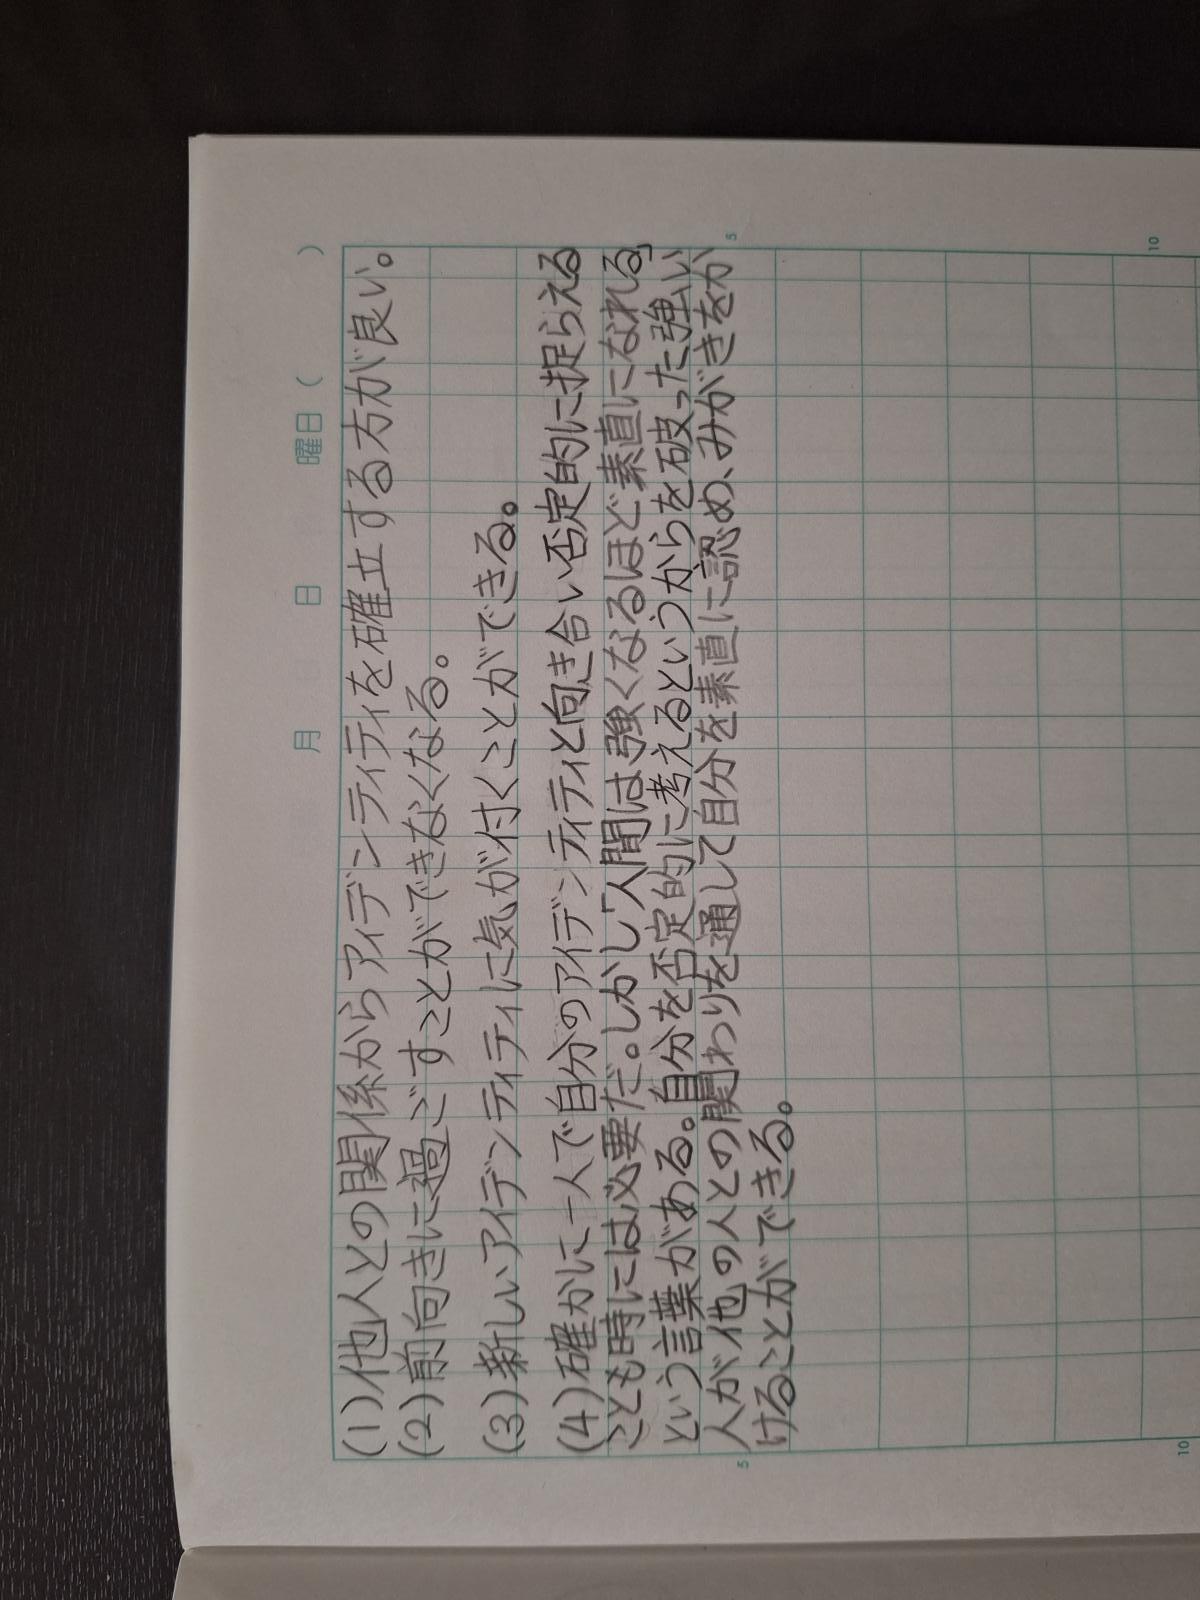 月 日 曜日( )
(1)他人との関係からアイデンティティを確立する方が良い。
(2)前向きに過ごすことができなくなる。
(3)新しいアイデンティティに気が付くことができる。
(4)確かに一人で自分のアイデンティティと向き合い否定的に捉らえる
ことも時には必要だ。しかし「人間は強くなるほど素直になれる」
という言葉がある。自分を否定的に考えるというからを破った強い
人が他の人との関わりを通して自分を素直に認め、みがきをか
けることができる。
5
10
5
10